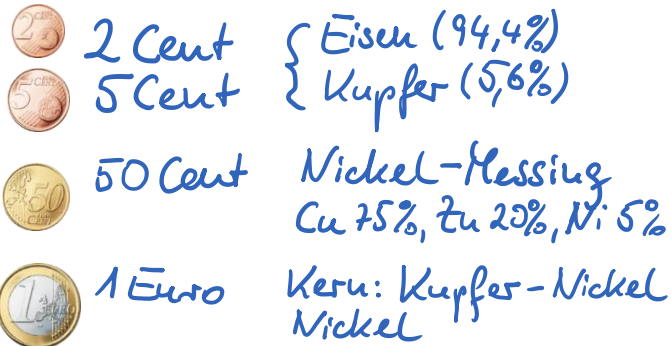 2 Cent { Eisen (94,4%)
5 Cent Kupfer (5,6%)
50 Cent Nickel-Messing
Cu 75%, Zu 20%, Ni 5%
1 Euro Kern: Kupfer-Nickel
Nickel